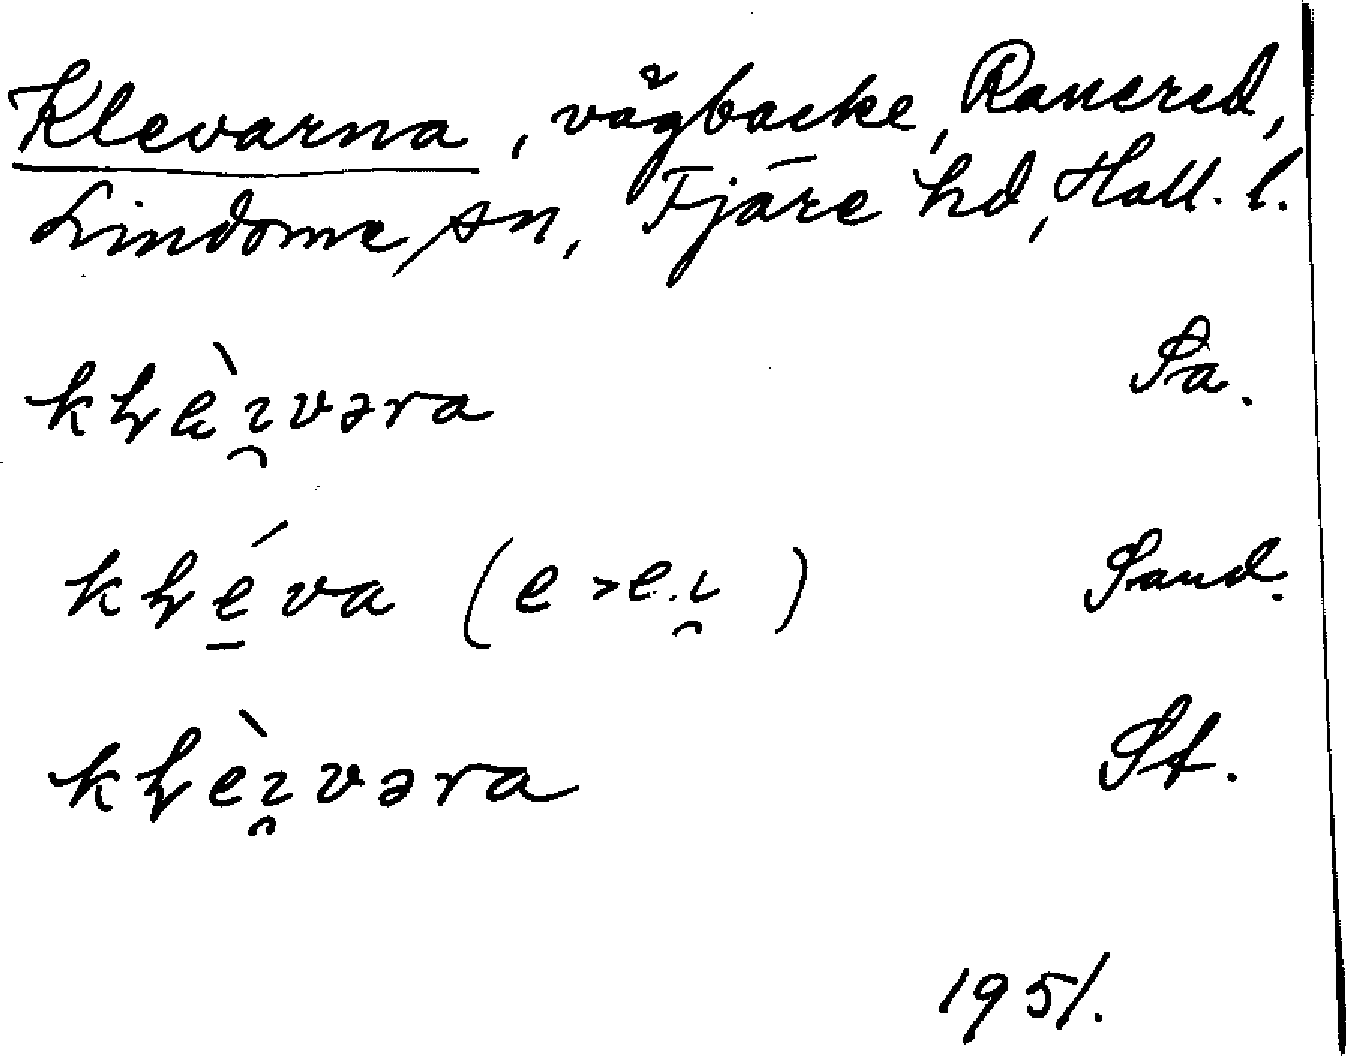 Klevarna, vägbacke, Ranered,
Lindome sn, Fjäre hd, Hall. l.
kḷè̠ı̯vəra Sa.
kḷé̠va (e > e.ı̯) Sand.
kḷèı̯vəra St.
1951.